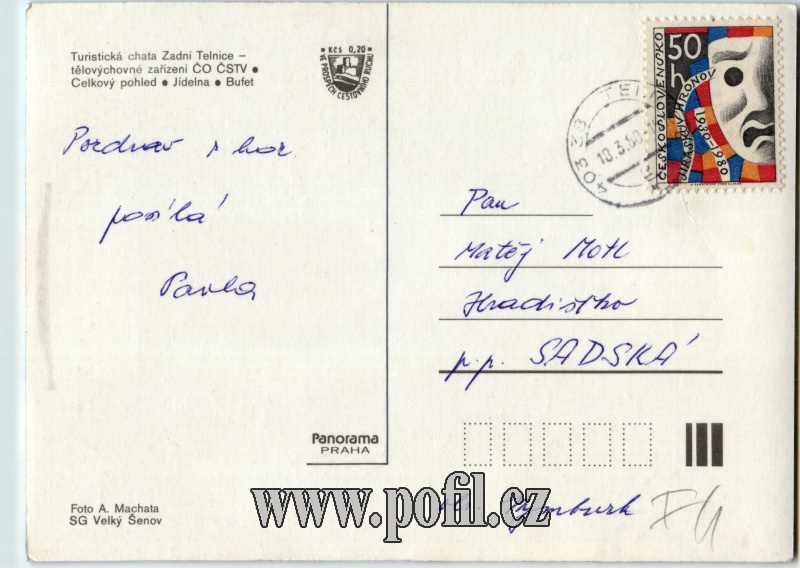 Turistická chata Zadní Telnice –
tělovýchovné zařízení ČO ČSTV •
Celkový pohled • Jídelna • Bufet
Kčs 0,20
VE PROSPĚCH CESTOVNÍHO RUCHU
Pozdrav s hor
posílá
Pavla
403 38 TEL
18.3.80
ČESKOSLOVENSKO
50
h
JIRÁSKŮV HRONOV
1930-1980
Pan
Matěj Motl
Hradištko
p.p. SADSKÁ
Panorama
PRAHA
Foto A. Machata
SG Velký Šenov
www.pofil.cz
Nymburk